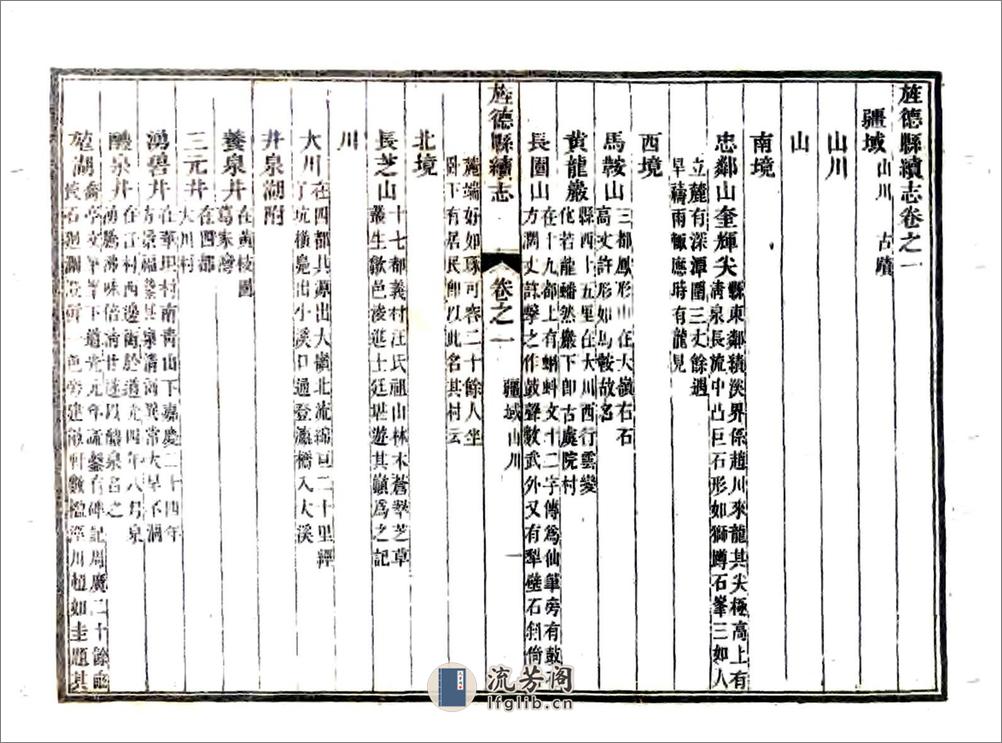 旌德縣續志卷之一
疆域 山川 古蹟
山川
山
南境
忠鄰山奎輝尖 縣東鄰績溪界係趙川來龍其尖極高上有
清泉長流中凸巨石形如獅蹲石峯三如人
立麓有深潭圍三丈餘遇
旱禱雨輒應時有龍見
西境
馬鞍山 三都鳳形山在大嶺右石
高丈許形如馬鞍故名
黄龍巖 縣西十五里在大川西行雲變
化若龍蟠然巖下卽古虞院村
長園山 在十九都上有蝌蚪文十二字傳爲仙筆旁有鼓石
方濶丈許擊之作鼓聲數武外又有犁壁石斜倚
旌德縣續志 卷之一 疆域 山川 一
麓端好如琢可容二十餘人坐
下有居民卽以此名其村云
北境
長芝山 十七都義村汪氏祖山林木蒼翠芝草
叢生歙邑凌廷堪遊其巔爲之記
川
大川 在四都其源出大嶺北流綿亘二十里經
坑橫 出小溪口過登瀛橋入大溪
井泉湖附
養泉井 在黃枝園
葛家
三元井 在四都
大川村
湧碧井 在華坦村南靑山下嘉慶二十四年
泉淸 異常大旱不涸
醴泉井 在 村西邊 道光四年八月泉
湧 沸味倍淸甘遂以醴泉名之
湖 喬亭文 下道光元年 鑿有碑記周廣二十餘畝
石 一色旁建 軒數楹涇川趙如圭題其
流芳阁
lfglib.cn